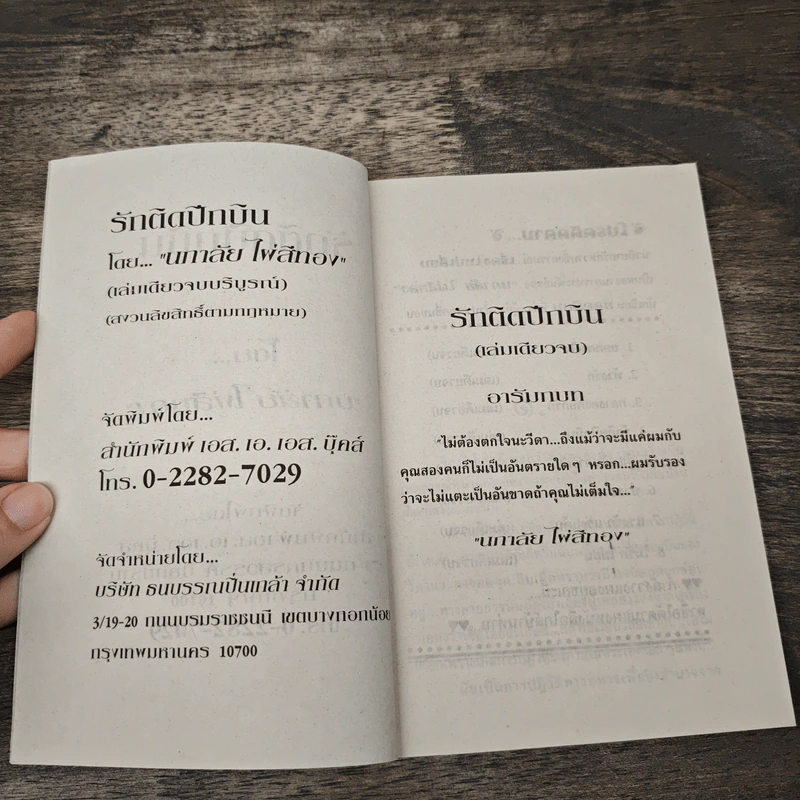 รักติดปีกบิน
โดย... "นภาลัย ไผ่สีทอง"
(เล่มเดียวจบบริบูรณ์)
(สงวนลิขสิทธิ์ตามกฎหมาย)
จัดพิมพ์โดย...
สำนักพิมพ์ เอส. เอ. เอส. บุ๊คส์
โทร. 0-2282-7029
จัดจำหน่ายโดย...
บริษัท ธนบรรณปิ่นเกล้า จำกัด
3/19-20 ถนนบรมราชชนนี เขตบางกอกน้อย
กรุงเทพมหานคร 10700
รักติดปีกบิน
(เล่มเดียวจบ)
อารัมภบท
"ไม่ต้องตกใจนะวีดา...ถึงแม้ว่าจะมีแค่ผมกับ
คุณสองคนก็ไม่เป็นอันตรายใด ๆ หรอก...ผมรับรอง
ว่าจะไม่แตะเป็นอันขาดถ้าคุณไม่เต็มใจ..."
"นภาลัย ไผ่สีทอง"